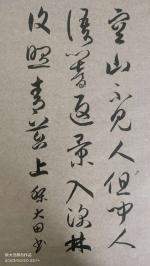 空山不见人但闻人
语响返景入深林
复照青苔上 大田书